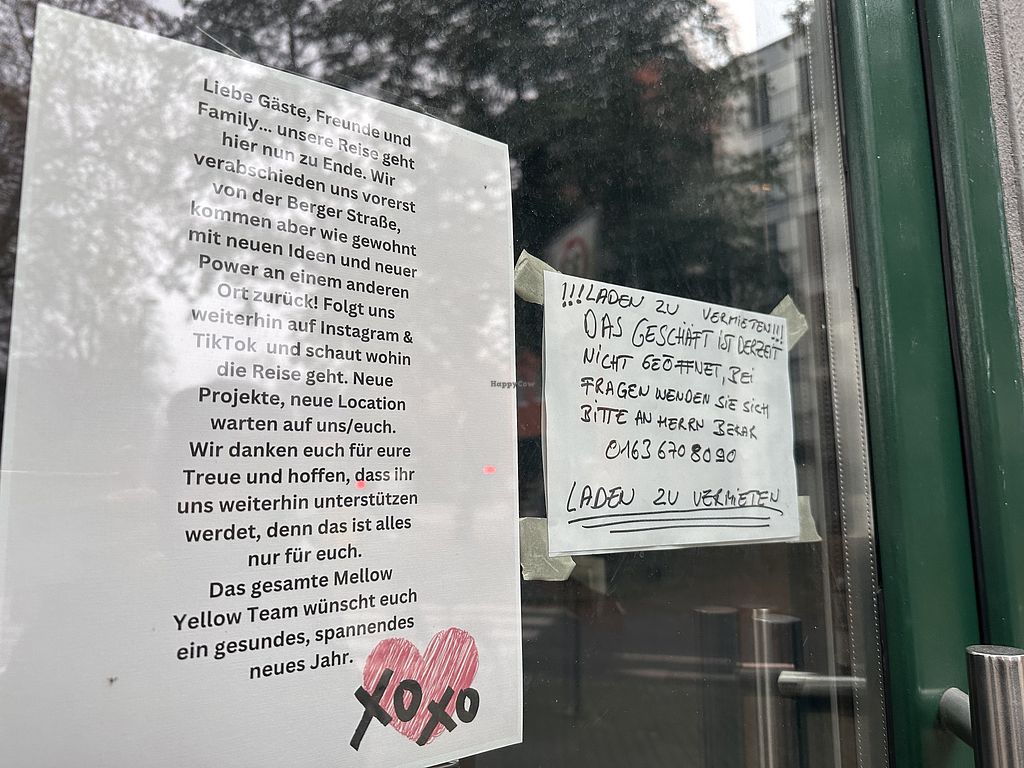 Liebe Gäste, Freunde und
Family... unsere Reise geht
hier nun zu Ende. Wir
verabschieden uns vorerst
von der Berger Straße,
kommen aber wie gewohnt
mit neuen Ideen und neuer
Power an einem anderen
Ort zurück! Folgt uns
weiterhin auf Instagram &
TikTok und schaut wohin
die Reise geht. Neue
Projekte, neue Location
warten auf uns/euch.
Wir danken euch für eure
Treue und hoffen, dass ihr
uns weiterhin unterstützen
werdet, denn das ist alles
nur für euch.
Das gesamte Mellow
Yellow Team wünscht euch
ein gesundes, spannendes
neues Jahr.
XOXO
!!!LADEN ZU VERMIETEN!!!
DAS GESCHÄFT IST DERZEIT
NICHT GEÖFFNET, BEI
FRAGEN WENDEN SIE SICH
BITTE AN HERRN BEKAR
0163 670 80 90
LADEN ZU VERMIETEN
HappyCow